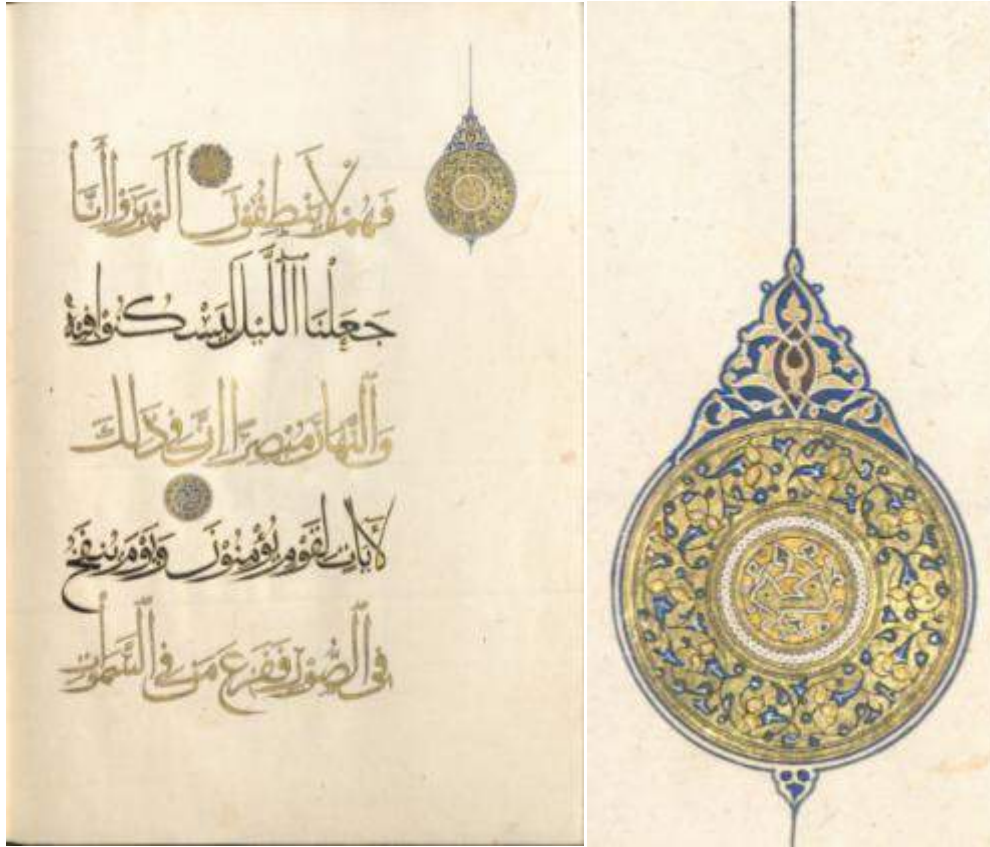 فَهُمْ لَا يَنْطِقُونَ أَلَمْ يَرَوْا أَنَّا
جَعَلْنَا اللَّيْلَ لِيَسْكُنُوا فِيهِ
وَالنَّهَارَ مُبْصِرًا إِنَّ فِي ذَلِكَ
لَآيَاتٍ لِقَوْمٍ يُؤْمِنُونَ وَيَوْمَ يُنْفَخُ
فِي الصُّورِ فَفَزِعَ مَنْ فِي السَّمٰوَاتِ